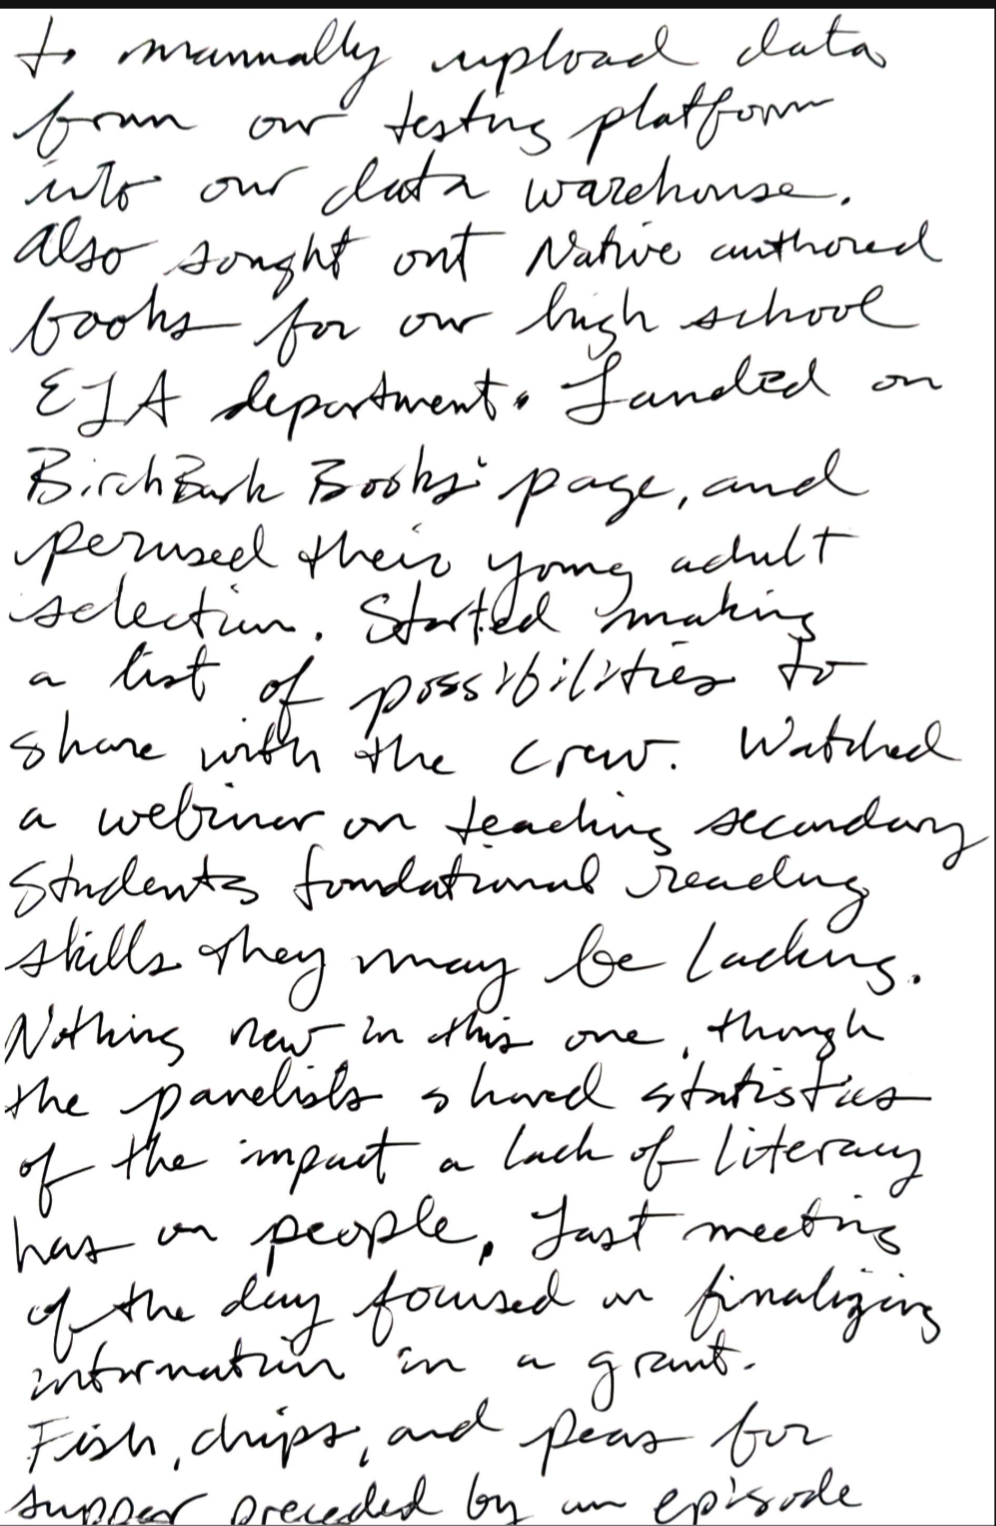 to manually upload data
from our testing platform
into our data warehouse.
Also sought out Native authored
books for our high school
ELA department. Landed on
BirchBark Books' page, and
perused their young adult
selection. Started making
a list of possibilities to
share with the crew. Watched
a webinar on teaching secondary
students foundational reading
skills they may be lacking.
Nothing new in this one, though
the panelists shared statistics
of the impact a lack of literacy
has on people. Last meeting
of the day focused on finalizing
information in a grant.
Fish, chips, and peas for
supper preceded by an episode